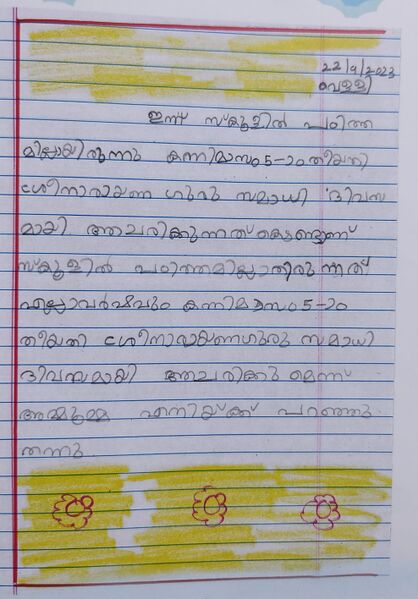 22/9/2023
വെള്ളി
ഇന്ന് സ്കൂളിൽ പഠിത്ത
മില്ലായിരുന്നു കന്നിമാസം 5-ാം തീയതി
ശ്രീനാരായണ ഗുരു സമാധി ദിവസ
മായി ആചരിക്കുന്നത് കൊണ്ടാണ്
സ്കൂളിൽ പഠിത്തമില്ലാതിരുന്നത്
എല്ലാവർഷവും കന്നിമാസം 5-ാം
തീയതി ശ്രീനാരായണഗുരു സമാധി
ദിവസമായി ആചരിക്കുമെന്ന്
അമ്മൂമ്മ എനിയ്ക്ക് പറഞ്ഞു
തന്നു.